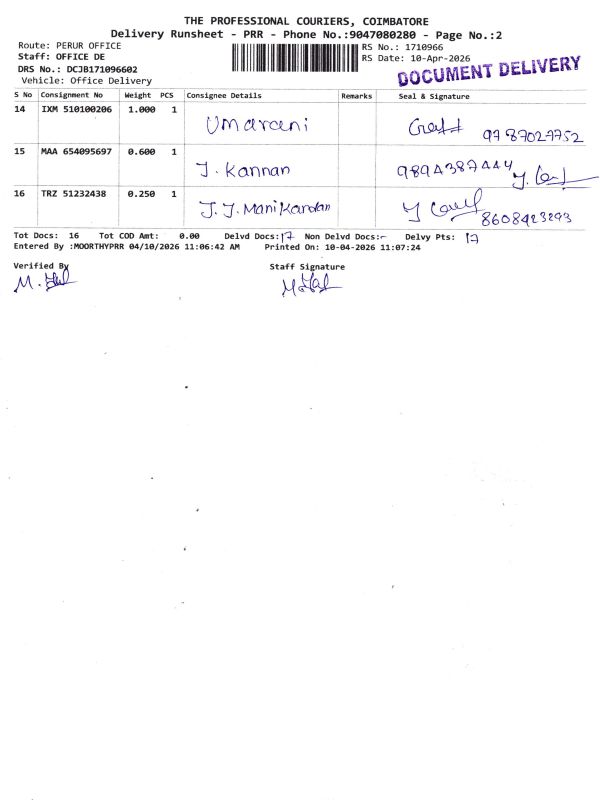 THE PROFESSIONAL COURIERS, COIMBATORE
Delivery Runsheet - PRR - Phone No.:9047080280 - Page No.:2
Route: PERUR OFFICE RS No.: 1710966
Staff: OFFICE DE RS Date: 10-Apr-2026
DRS No.: DCJB171096602 DOCUMENT DELIVERY
Vehicle: Office Delivery
S No Consignment No Weight PCS Consignee Details Remarks Seal & Signature
14 IXM 510100206 1.000 1 Umarani 9787027752
15 MAA 654095697 0.600 1 J. Kannan 9894387444
16 TRZ 51232438 0.250 1 J. J. Manikandan 8608423293
Tot Docs: 16 Tot COD Amt: 0.00 Delvd Docs: 17 Non Delvd Docs:- Delvy Pts: 17
Entered By :MOORTHYPRR 04/10/2026 11:06:42 AM Printed On: 10-04-2026 11:07:24
Verified By Staff Signature